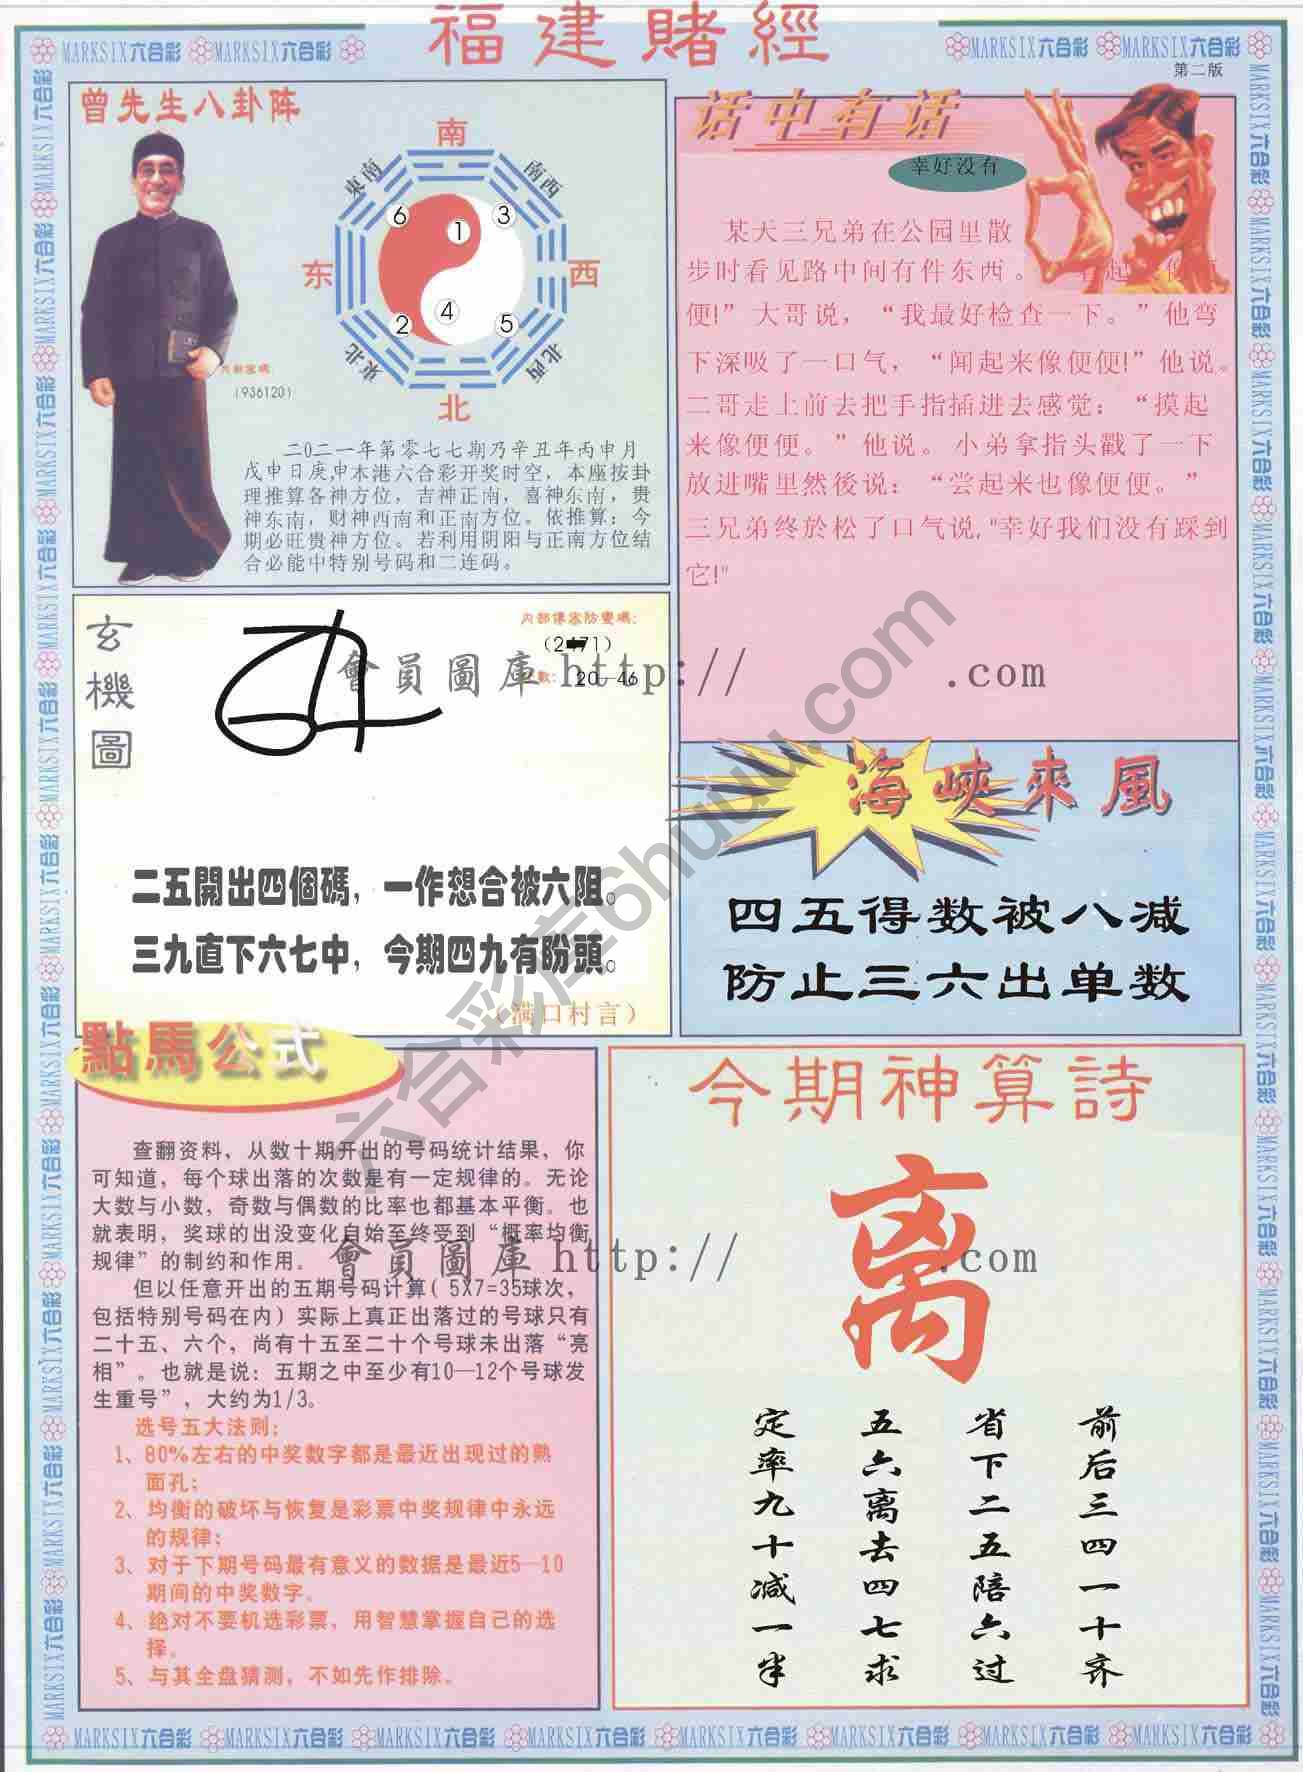 福建賭經
MARKSIX六合彩 MARKSIX六合彩
MARKSIX六合彩 MARKSIX六合彩
第二版
曾先生八卦阵
南
東南
南西
6
1
3
东
西
4
2
5
東北
北西
北
(936120)
二0二一年第零七七期乃辛丑年丙申月
戊申日庚,申本港六合彩开奖时空,本座按卦
理推算各神方位,吉神正南,喜神东南,贵
神东南,财神西南和正南方位。依推算:今
期必旺贵神方位。若利用阴阳与正南方位结
合必能中特别号码和二连码。
话中有话
幸好没有
某天三兄弟在公园里散
步时看见路中间有件东西。
便!”大哥说,“我最好检查一下。”他弯
下深吸了一口气,“闻起来像便便!”他说。
二哥走上前去把手指插进去感觉:“摸起
来像便便。”他说。小弟拿指头戳了一下
放进嘴里然後说:“尝起来也像便便。”
三兄弟终於松了口气说,"幸好我们没有踩到
它!"
玄機圖
内部傳密防變碼:
20-46
會員圖庫 http:// .com
二五開出四個碼,一作想合被六阻。
三九直下六七中,今期四九有盼頭。
(满口村言)
海峽來風
四五得数被八减
防止三六出单数
點馬公式
查翻资料,从数十期开出的号码统计结果,你
可知道,每个球出落的次数是有一定规律的。无论
大数与小数,奇数与偶数的比率也都基本平衡。也
就表明,奖球的出没变化自始至终受到“概率均衡
规律”的制约和作用。
但以任意开出的五期号码计算(5X7=35球次,
包括特别号码在内)实际上真正出落过的号球只有
二十五、六个,尚有十五至二十个号球未出落“亮
相”。也就是说:五期之中至少有10—12个号球发
生重号”,大约为1/3。
选号五大法则:
1、80%左右的中奖数字都是最近出现过的熟
面孔;
2、均衡的破坏与恢复是彩票中奖规律中永远
的规律;
3、对于下期号码最有意义的数据是最近5—10
期间的中奖数字。
4、绝对不要机选彩票,用智慧掌握自己的选
择。
5、与其全盘猜测,不如先作排除。
會員圖庫 http:// .com
今期神算詩
离
前后三四一十齐
省下二五陪六过
五六离去四七求
定率九十减一半
六合彩库6huuu.com
MARKSIX六合彩 MARKSIX六合彩 MARKSIX六合彩 MARKSIX六合彩 MARKSIX六合彩 MARKSIX六合彩 MARKSIX六合彩 MARKSIX六合彩